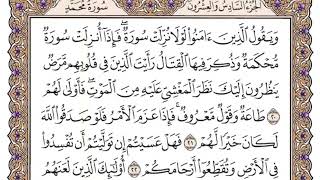 الجزء السادس والعشرون سورة محمد
وَيَقُولُ الَّذِينَ ءَامَنُوا لَوْلَا نُزِّلَتْ سُورَةٌ فَإِذَا أُنزِلَتْ سُورَةٌ
مُّحْكَمَةٌ وَذُكِرَ فِيهَا الْقِتَالُ رَأَيْتَ الَّذِينَ فِي قُلُوبِهِم مَّرَضٌ
يَنظُرُونَ إِلَيْكَ نَظَرَ الْمَغْشِيِّ عَلَيْهِ مِنَ الْمَوْتِ فَأَوْلَىٰ لَهُمْ
٢٠ طَاعَةٌ وَقَوْلٌ مَّعْرُوفٌ فَإِذَا عَزَمَ الْأَمْرُ فَلَوْ صَدَقُوا اللَّهَ
لَكَانَ خَيْرًا لَّهُمْ ٢١ فَهَلْ عَسَيْتُمْ إِن تَوَلَّيْتُمْ أَن تُفْسِدُوا
فِي الْأَرْضِ وَتُقَطِّعُوا أَرْحَامَكُمْ ٢٢ أُولَٰئِكَ الَّذِينَ لَعَنَهُمُ